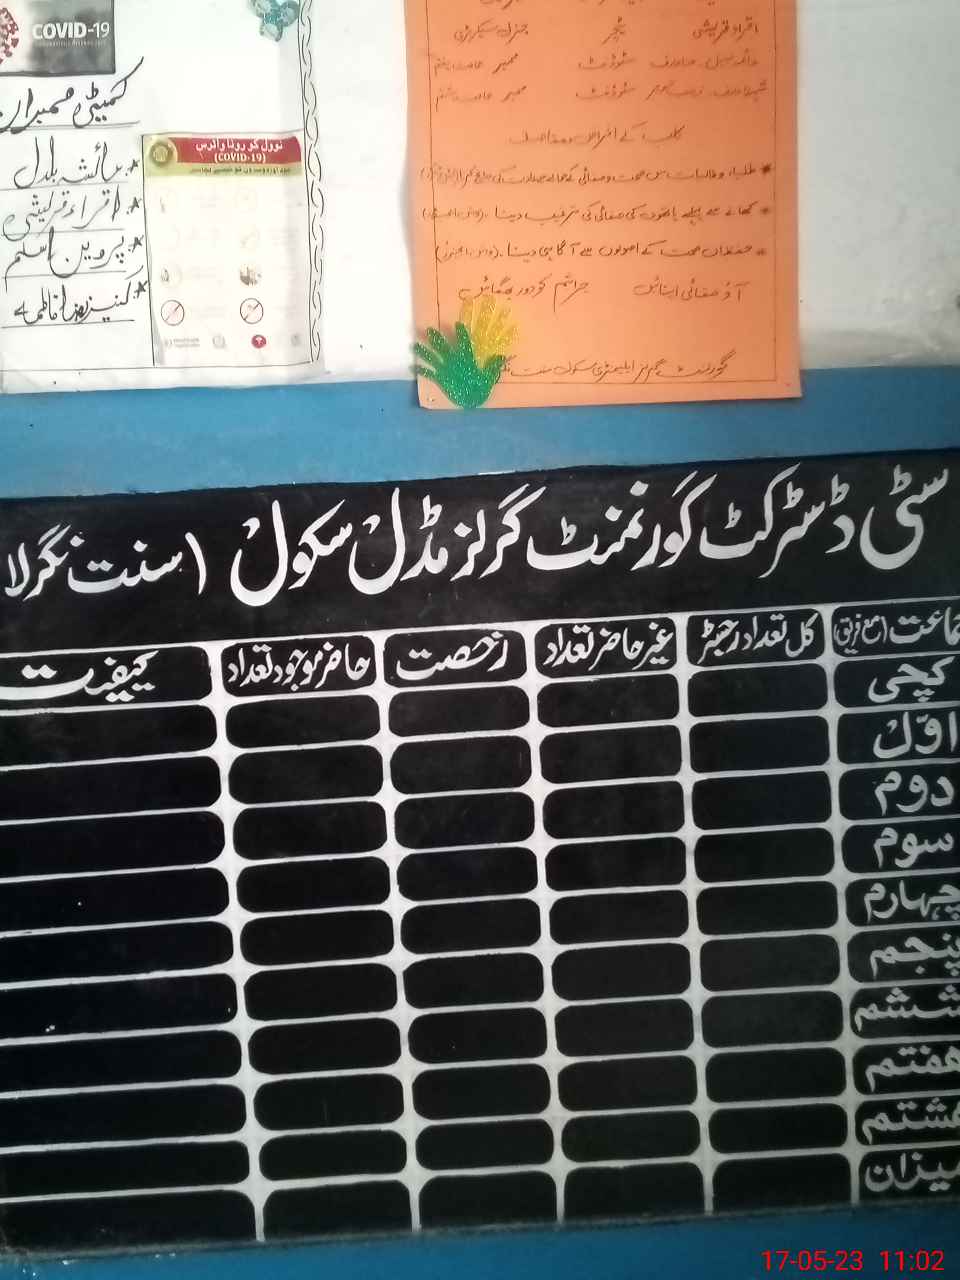 COVID-19
کمیٹی ممبران
سائشہ بلال
اقراء قریشی
پروین اسلم
کنیز زہرا فاطمہ
نوول کورونا وائرس
(COVID-19)
اقراء قریشی ٹیچر جنرل سیکرٹری
سٹوڈنٹ ممبر جماعت ہفتم
سٹوڈنٹ ممبر جماعت ہشتم
کلب کے اغراض و مقاصد
کھانے سے پہلے ہاتھوں کی صفائی کی ترغیب دینا۔
حفظان صحت کے اصولوں سے آگاہی دینا۔
آؤ صفائی اپنائیں جراثیم کو دور بھگائیں
گورنمنٹ گرلز ایلیمنٹری سکول سنت نگر
سٹی ڈسٹرکٹ گورنمنٹ گرلز مڈل سکول (سنت نگر لا
جماعت (مع فریق) کل تعداد رجسٹر غیر حاضر تعداد رخصت حاضر موجود تعداد کیفیت
کچی
اوّل
دوم
سوم
چہارم
پنجم
ششم
ہفتم
ہشتم
میزان
17-05-23 11:02